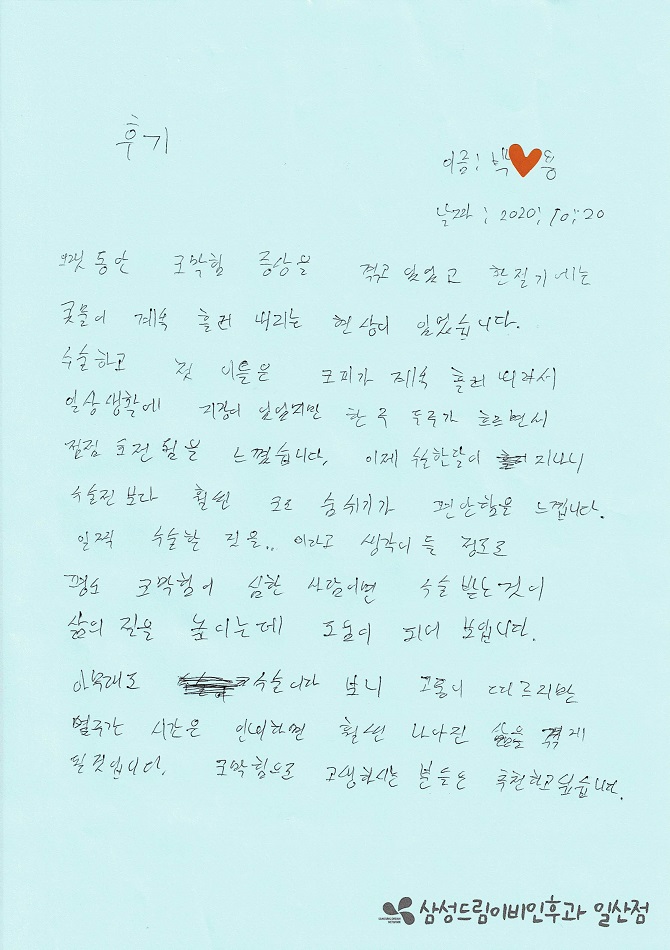 후기
이름: 백 용
날짜: 2020. 10. 20
오랫동안 코막힘 증상을 겪고 있었고 환절기에는
콧물이 계속 흘러 내리는 현상이 있었습니다.
수술하고 첫 이틀은 코피가 계속 흘러 내려서
일상생활에 지장이 있었지만 한 주 두주가 흐르면서
점점 호전 됨을 느꼈습니다. 이제 수술한달이 지나니
수술전 보다 훨씬 코로 숨쉬기가 편안함을 느낍니다.
일찍 수술할 것을.. 이라고 생각이 들 정도로
평소 코막힘이 심한 사람이면 수술 받는것이
삶의 질을 높이는데 도움이 되어 보입니다.
아무래도 코수술이다 보니 고통이 따르지만
몇주간 시간은 인내하면 훨씬 나아진 삶을 겪게
될것입니다. 코막힘으로 고생하시는 분들은 추천하고싶습니다.
삼성드림이비인후과 일산점